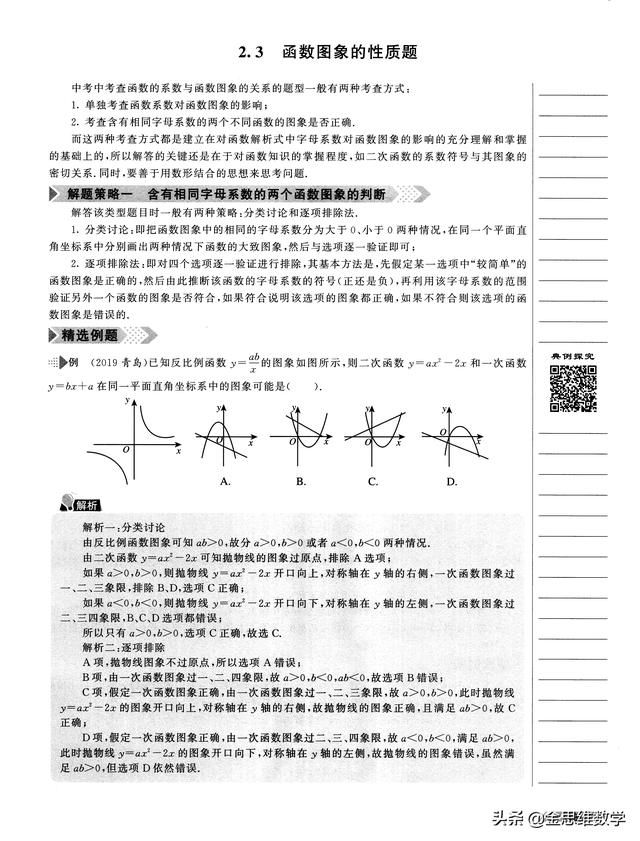 2.3 函数图象的性质题
中考中考查函数的系数与函数图象的关系的题型一般有两种考查方式:
1. 单独考查函数系数对函数图象的影响;
2. 考查含有相同字母系数的两个不同函数的图象是否正确.
而这两种考查方式都是建立在对函数解析式中字母系数对函数图象的影响的充分理解和掌握
的基础上的,所以解答的关键还是在于对函数知识的掌握程度,如二次函数的系数符号与其图象的
密切关系.同时,要善于用数形结合的思想来思考问题.
解题策略一 含有相同字母系数的两个函数图象的判断
解答该类型题目时一般有两种策略:分类讨论和逐项排除法.
1. 分类讨论:即把函数图象中的相同的字母系数分为大于0、小于0两种情况,在同一个平面直
角坐标系中分别画出两种情况下函数的大致图象,然后与选项逐一验证即可;
2. 逐项排除法:即对四个选项逐一验证进行排除,其基本方法是,先假定某一选项中“较简单”的
函数图象是正确的,然后由此推断该函数的字母系数的符号(正还是负),再利用该字母系数的范围
验证另外一个函数的图象是否符合,如果符合说明该选项的图象都正确,如果不符合则该选项的函
数图象是错误的.
精选例题
典例探究
例 (2019青岛)已知反比例函数 y=ab/x 的图象如图所示,则二次函数 y=ax²-2x 和一次函数
y=bx+a 在同一平面直角坐标系中的图象可能是( ).
y y y y y
O x O x O x O x O x
A. B. C. D.
解析
解析一:分类讨论
由反比例函数图象可知 ab>0,故分 a>0,b>0 或者 a<0,b<0 两种情况.
由二次函数 y=ax²-2x 可知抛物线的图象过原点,排除 A 选项;
如果 a>0,b>0,则抛物线 y=ax²-2x 开口向上,对称轴在 y 轴的右侧,一次函数图象过
一、二、三象限,排除 B、D,选项 C 正确;
如果 a<0,b<0,则抛物线 y=ax²-2x 开口向下,对称轴在 y 轴的左侧,一次函数图象过
二、三四象限,B、C、D 选项都错误;
所以只有 a>0,b>0,选项 C 正确,故选 C.
解析二:逐项排除
A 项,抛物线图象不过原点,所以选项 A 错误;
B 项,由一次函数图象过一、二、四象限,故 a>0,b<0,ab<0,故选项 B 错误;
C 项,假定一次函数图象正确,由一次函数图象过一、二、三象限,故 a>0,b>0,此时抛物线
y=ax²-2x 的图象开口向上,对称轴在 y 轴的右侧,故抛物线的图象正确,且满足 ab>0,故 C
正确;
D 项,假定一次函数图象正确,由一次函数图象过二、三、四象限,故 a<0,b<0,满足 ab>0,
此时抛物线 y=ax²-2x 的图象开口向下,对称轴在 y 轴的左侧,故抛物线的图象错误,虽然满
足 ab>0,但选项 D 依然错误.
头条 @金思维数学